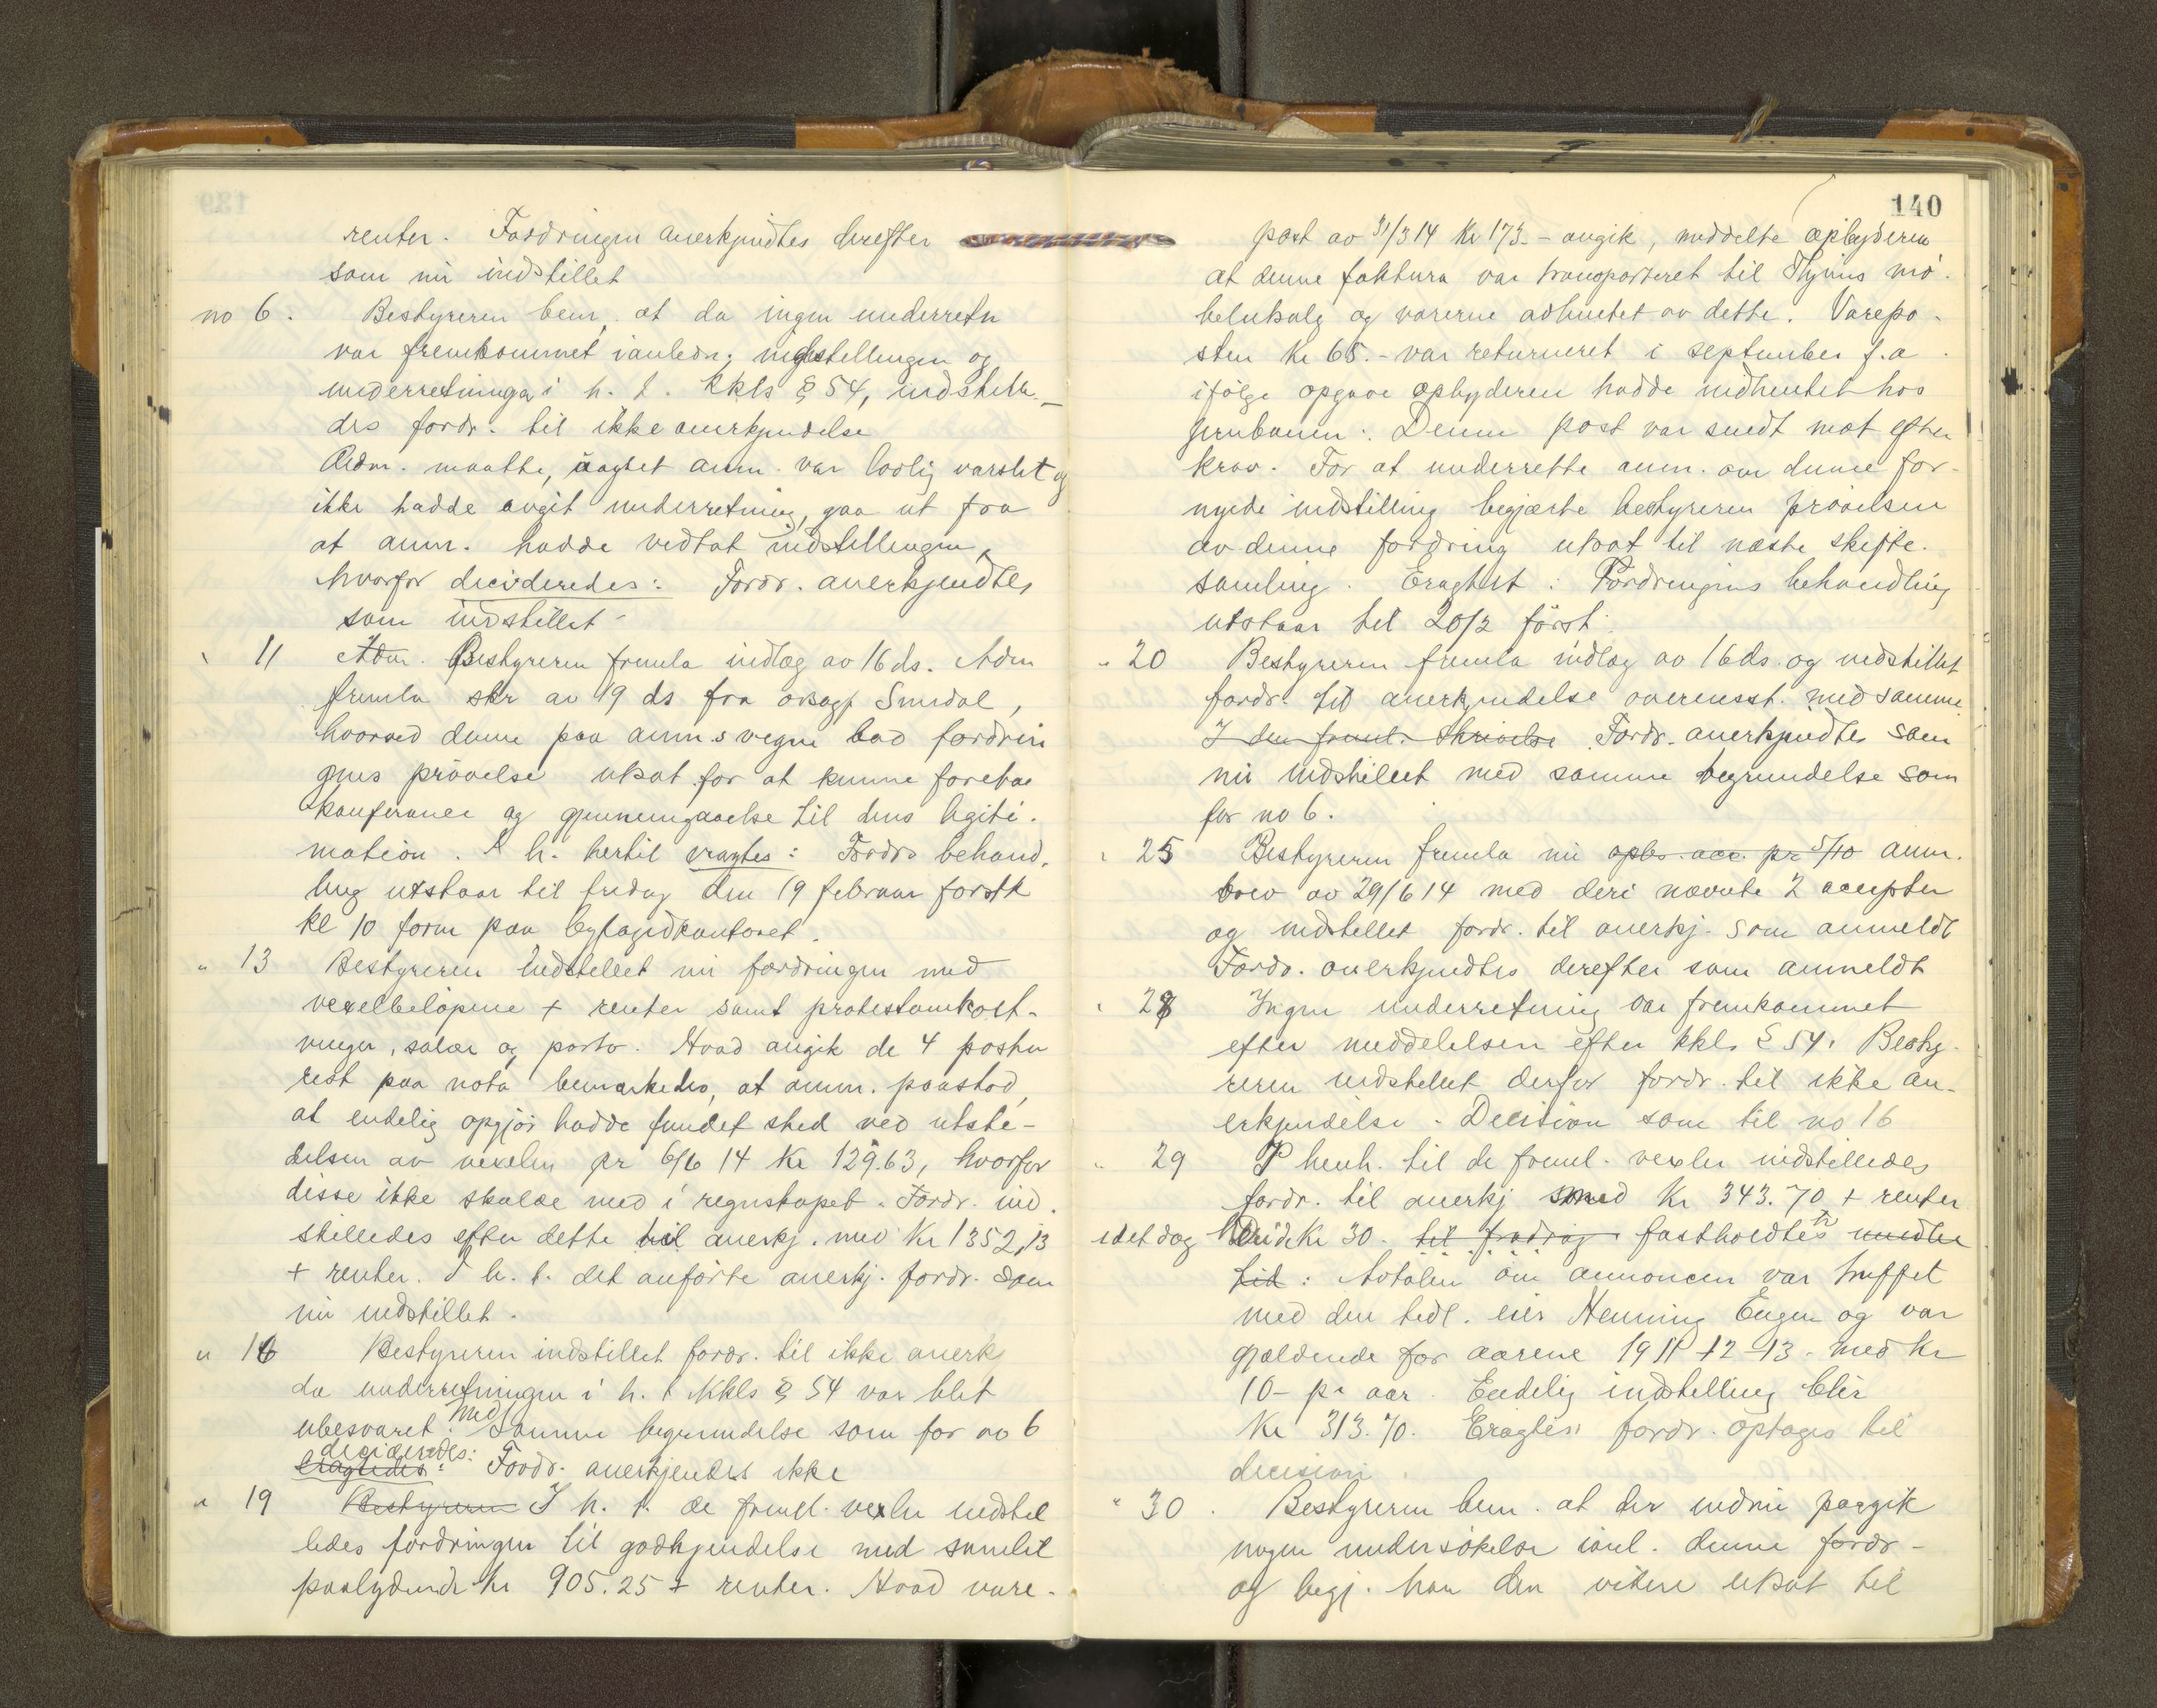 renter. Fordringen anerkjendtes derefter
som nu indstillet
no 6. Bestyreren bem. at da ingen underretn
var fremkommet i anledn. indstellingen og
underretninger i h. t. kkls § 54, indstill-
des fordr. til ikke anerkjendelse
Adm. maatte, uagtet anm. var lovlig varslet og
ikke hadde avgit underretning, gaa ut fra
at anm. hadde vedtat indstillingen,
hvorfor decideredes: Fordr. anerkjendtes
som indstillet
" 11 Adm. Bestyreren fremla indlæg av 16 ds. Adm
fremla skr av 19 ds fra orsagf Smedal,
hvorved denne paa anm.s vegne bad fordrin
gens prøvelse utsat for at kunne foreta
konferance og gjennemgaaelse til dens legiti-
mation. I h. hertil eragtes: Fordrs behand.
ling utstaar til fredag den 19 februar førstk
kl 10 form paa byfogedkontoret.
" 13 Bestyreren indstillet nu fordringen med
vexelbeløpene + renter samt protestomkost-
ninger, salær og porto. Hvad angik de 4 poster
rest paa nota bemærkedes, at anm. paastod,
at endelig opgjør hadde fundet sted ved utste-
delsen av vexelen pr 6/6 14 Kr 129.63, hvorfor
disse ikke skulde med i regnskapet. Fordr. ind.
stilledes efter dette til anerkj. med Kr 1352,13
+ renter. I h. t. det anførte anerkj. fordr. som
nu indstillet.
" 16 Bestyreren indstillet fordr. til ikke anerk
da underretningen i h. t kkls § 54 var blet
ubesvaret. Med samme begrundelse som for no 6
decideredes:
eragtedes: Fordr. anerkjendes ikke
" 19 Bestyreren I h. t. de freml. vexler indstil
ledes fordringen til godkjendelse med samlet
paalydende kr 905.25 + renter. Hvad vare-
140
post av 31/3 14 Kr 173.- angik, meddelte opbyderen
at denne faktura var transporteret til Thjuns mø-
belutsalg og varerne avhentet av dette. Varepo-
sten Kr 65.- var returneret i september f.a.
ifølge opgave opbyderen hadde indhentet hos
jernbanen. Denne post var sendt mot efter
krav. For at underrette anm. om denne for-
nyede indstilling begjærte bestyreren prøvelsen
av denne fordring utsat til næste skifte.
samling. Eragtet: Fordringens behandling
utstaar til 20/2 først.
" 20 Bestyreren fremla indlæg av 16 ds. og indstillet
fordr. til anerkjendelse overensst. med samme.
I den freml. skrivelse Fordr. anerkjendtes som
nu indstillet med samme begrundelse som
for no 6.
" 25 Bestyreren fremla nu opbs. acc. pr 5/10 anm.
brev av 29/6 14 med deri nævnte 2 accepter
og indstillet fordr. til anerkj. som anmeldt
Fordr. anerkjendtes derefter som anmeldt
" 28 Ingen underretning var fremkommet
efter meddelelsen efter kkl. § 54. Besty-
reren indstillet derfor fordr. til ikke an-
erkjendelse. Decision som til no 16
" 29 I henh. til de freml. vexler indstilledes
fordr. til anerkj med Kr 343.70 + renter
idet dog Kr 30. til fradrag fastholdtes
tid: Avtalen om annoncen var truffet
med den tidl. eier Henning Engen og var
gjældende for aarene 1911-12-13 - med Kr
10- pr aar. Endelig indstilling blir
Kr 313.70. Eragtes: fordr. optages til
decision.
" 30. Bestyreren bem. at der endnu paagik
nogen undersøkelse i anl. denne fordr-
og begj. han den videre utsat til